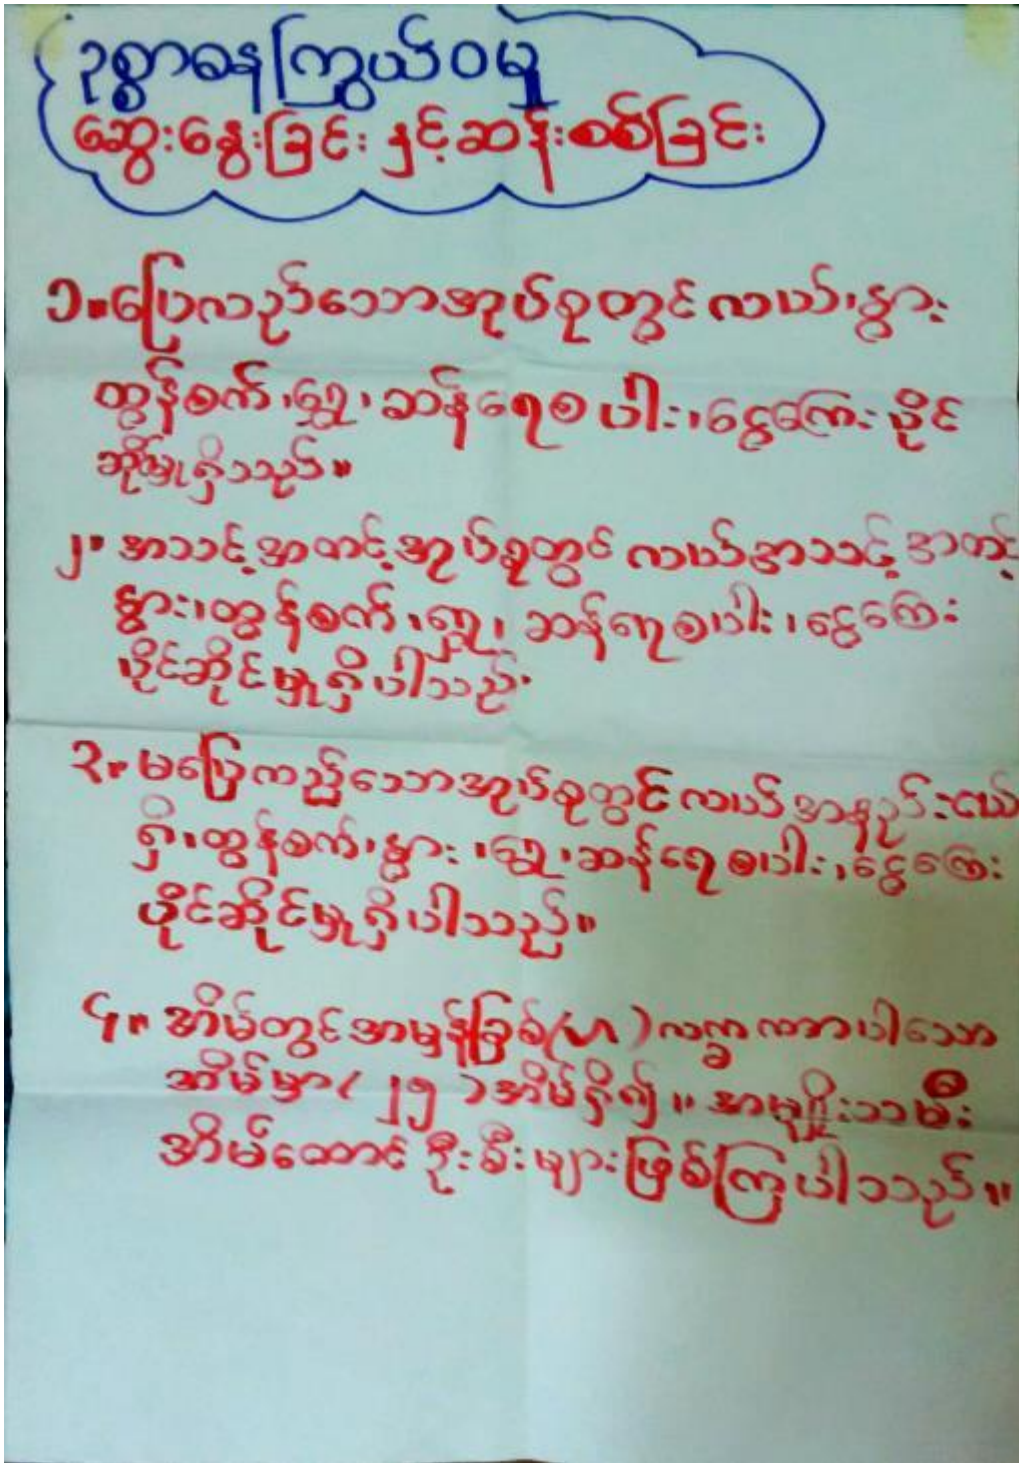 ဥစ္စာဓနကြွယ်ဝမှု
ဆွေးနွေးခြင်း နှင့်ဆန်းစစ်ခြင်း
၁။ပြေလည်သောအုပ်စုတွင် လယ်၊နွား
ထွန်စက်၊ရွှေ၊ဆန်ရေစပါး၊ငွေကြေးပိုင်
ဆိုမှုရှိသည်။
၂။ အသင့်အတင့်အုပ်စုတွင် လယ်အသင့်အတင့်
နွား၊ထွန်စက်၊ရွှေ၊ ဆန်ရေစပါး၊ငွေကြေး
ပိုင်ဆိုင်မှုရှိပါသည်။
၃။ မပြေလည်သောအုပ်စုတွင် လယ်အနည်းငယ်
ရှိ၊ထွန်စက်၊နွား၊ရွှေ၊ဆန်ရေစပါး၊ငွေကြေး
ပိုင်ဆိုင်မှုရှိပါသည်။
၄။ အိမ်တွင်အမှန်ခြစ်(✓)လက္ခဏာပါသော
အိမ်မှာ(၂၅)အိမ်ရှိ၍။ အမျိုးသမီး
အိမ်ထောင်ဦးစီးများဖြစ်ကြပါသည်။